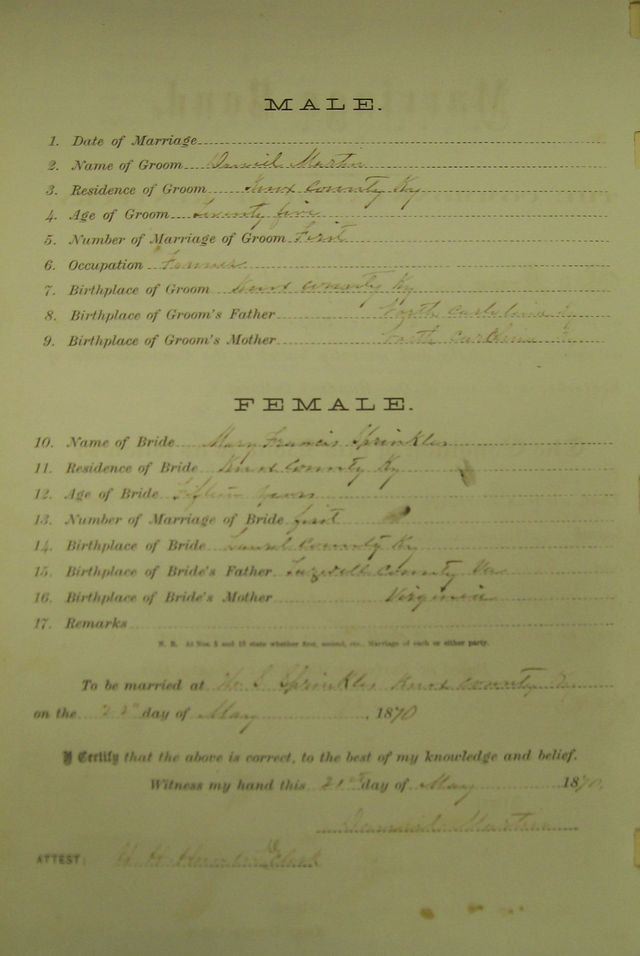 MALE.
1. Date of Marriage
2. Name of Groom Daniel Martin
3. Residence of Groom Knox County Ky
4. Age of Groom Twenty five
5. Number of Marriage of Groom First
6. Occupation Farmer
7. Birthplace of Groom Knox County Ky
8. Birthplace of Groom's Father North Carolina
9. Birthplace of Groom's Mother North Carolina
FEMALE.
10. Name of Bride Mary Francis Sprinkles
11. Residence of Bride Knox County Ky
12. Age of Bride Fifteen years
13. Number of Marriage of Bride first
14. Birthplace of Bride Laurel County Ky
15. Birthplace of Bride's Father Tazewell County Va
16. Birthplace of Bride's Mother Virginia
17. Remarks
N. B. At Nos. 5 and 13 state whether first, second, etc., Marriage of each or either party.
To be married at S Sprinkles Knox County Ky
on the 22 day of May 1870
I Certify that the above is correct, to the best of my knowledge and belief.
Witness my hand this 21st day of May 1870.
Martin
ATTEST: Clerk